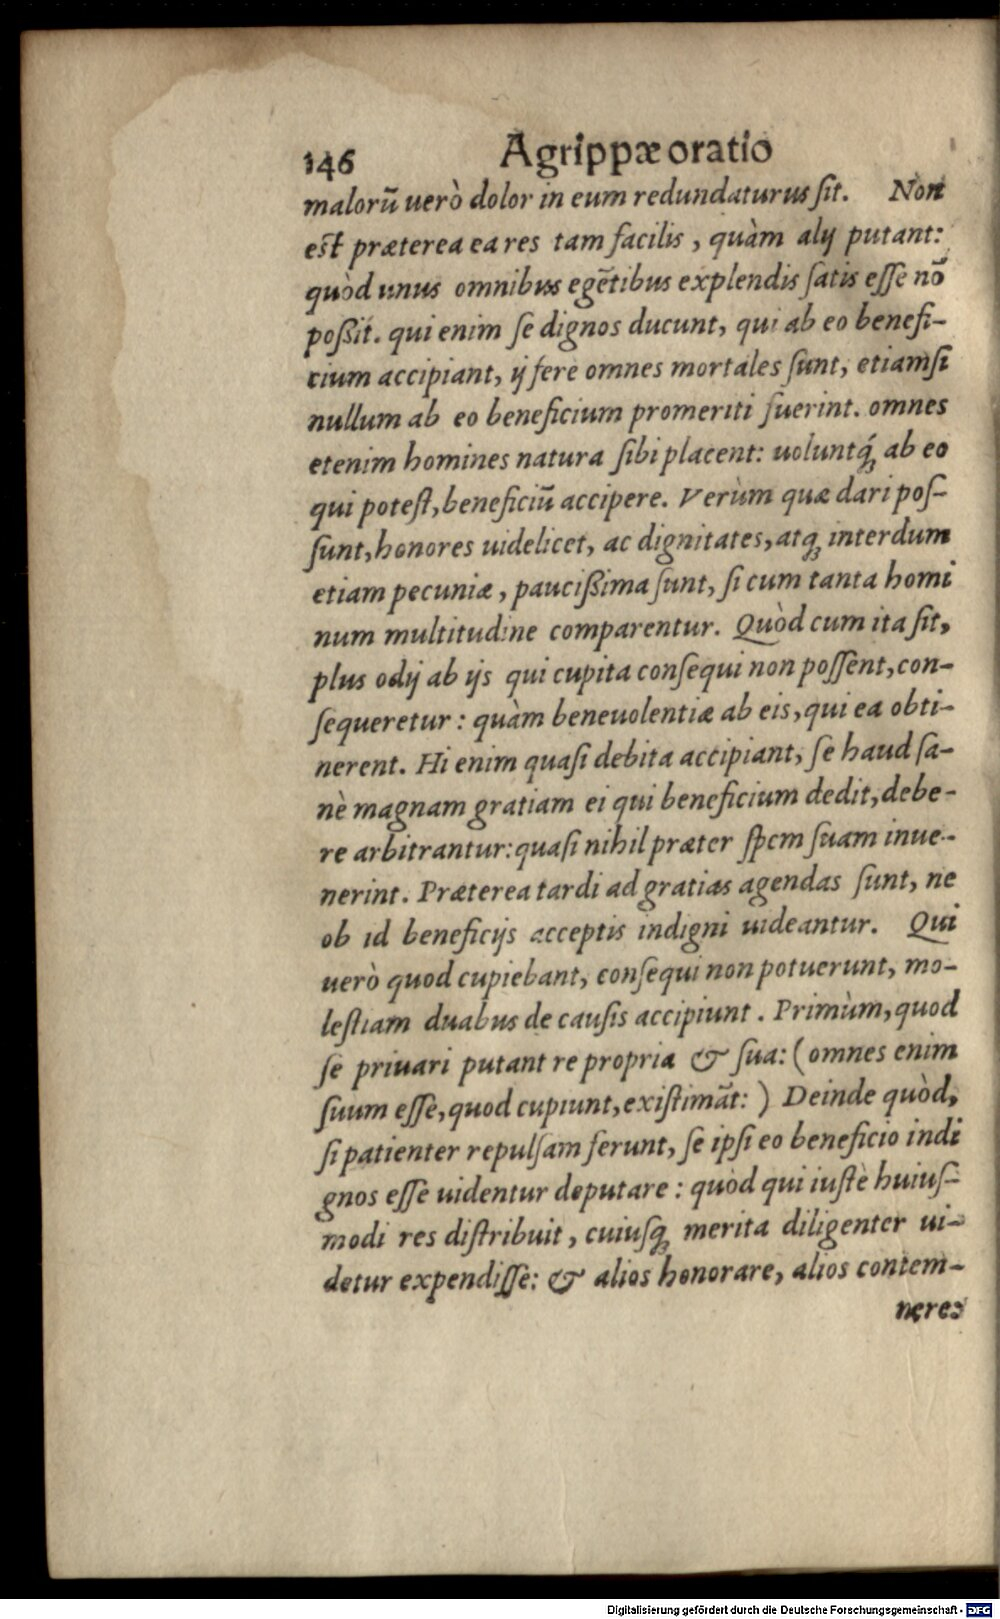 146 Agrippæ oratio
malorũ uerò dolor in eum redundaturus ſit. Non
eſt præterea ea res tam facilis, quàm alij putant:
quòd unus omnibus egẽtibus explendis ſatis eſſe nõ
poßit. qui enim ſe dignos ducunt, qui ab eo benefi-
cium accipiant, ij fere omnes mortales ſunt, etiamſi
nullum ab eo beneficium promeriti fuerint. omnes
etenim homines natura ſibi placent: uoluntq́; ab eo
qui poteſt, beneficiũ accipere. Verùm quæ dari poſ-
ſunt, honores uidelicet, ac dignitates, atq; interdum
etiam pecuniæ, paucißima ſunt, ſi cum tanta homi
num multitudine comparentur. Quòd cum ita ſit,
plus odij ab ijs qui cupita conſequi non poſſent, con-
ſequeretur: quàm beneuolentiæ ab eis, qui ea obti-
nerent. Hi enim quaſi debita accipiant, ſe haud ſa-
nè magnam gratiam ei qui beneficium dedit, debe-
re arbitrantur: quaſi nihil præter ſpem ſuam inue-
nerint. Præterea tardi ad gratias agendas ſunt, ne
ob id beneficijs acceptis indigni uideantur. Qui
uerò quod cupiebant, conſequi non potuerunt, mo-
leſtiam duabus de cauſis accipiunt. Primùm, quod
ſe priuari putant re propria & ſua: (omnes enim
ſuum eſſe, quod cupiunt, exiſtimãt:) Deinde quòd,
ſi patienter repulſam ferunt, ſe ipſi eo beneficio indi
gnos eſſe uidentur deputare: quòd qui iuſtè huiuſ-
modi res diſtribuit, cuiuſq; merita diligenter ui-
detur expendiſſe: & alios honorare, alios contem-
nere:
Digitalisierung gefördert durch die Deutsche Forschungsgemeinschaft - DFG